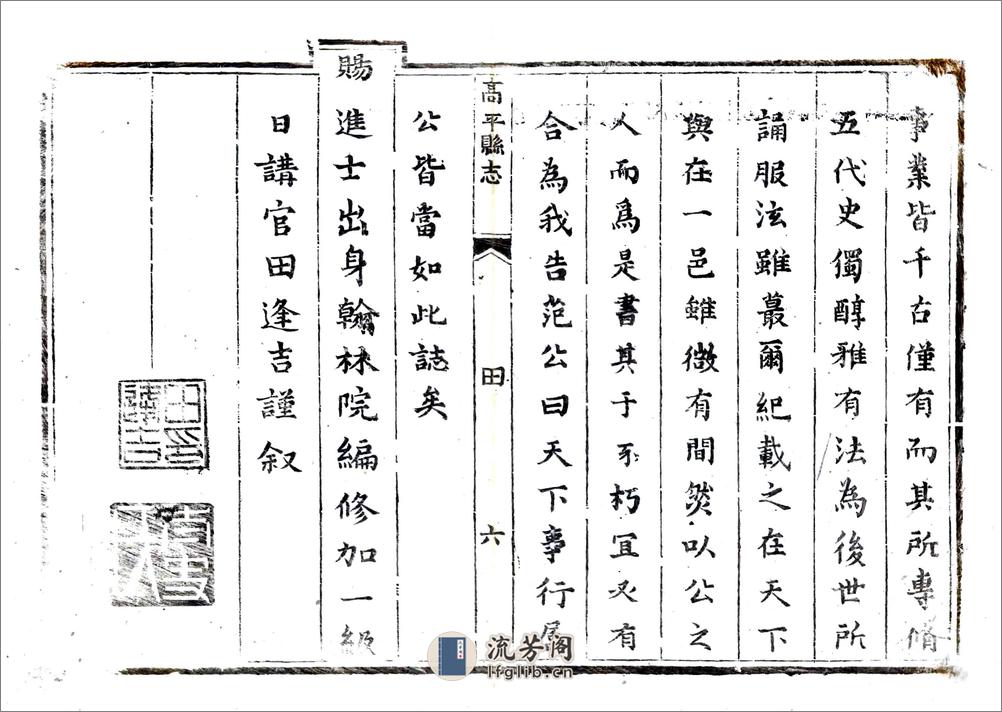 事業皆千古僅有而其所專脩
五代史獨醇雅有法為後世所
誦服泫雖蕞爾紀載之在天下
與在一邑雖微有間然以公之
人而爲是書其于不朽宜又有
合為我告范公曰天下事行
高平縣志
田
六
公皆當如此誌矣
賜進士出身翰林院編修加一級
日講官田逢吉謹叙
田逢吉印
流芳阁
lfglib.cn